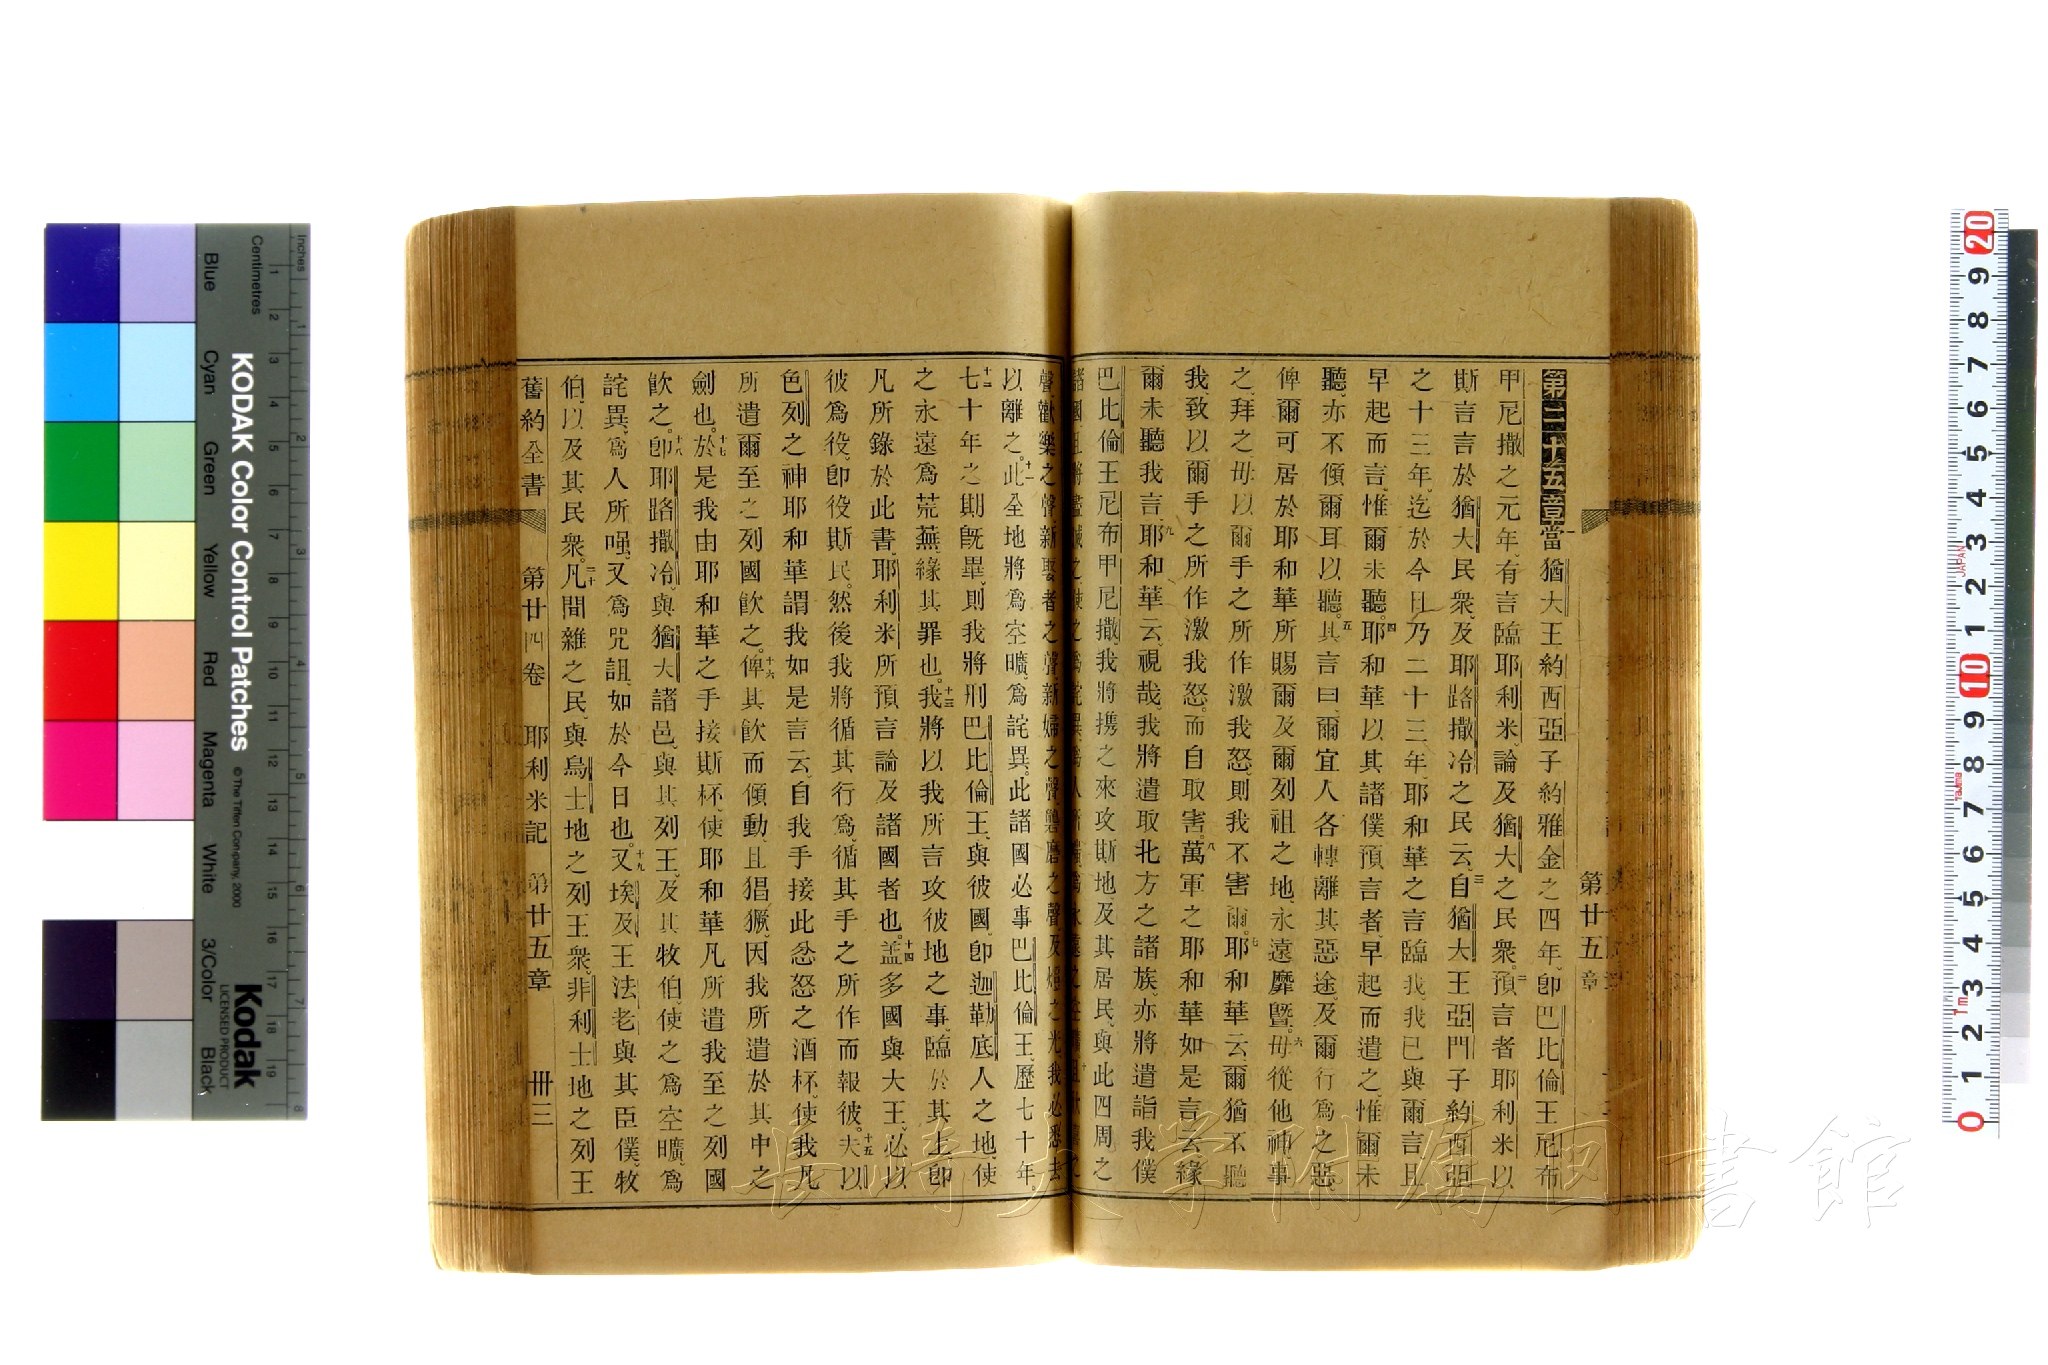 第廿五章
第二十五章一當猶大王約西亞子約雅金之四年、卽巴比倫王尼布
甲尼撒之元年、有言臨耶利米、論及猶大之民衆。二預言者耶利米以
斯言言於猶大民衆、及耶路撒冷之民云、三自猶大王亞門子約西亞
之十三年、迄於今日、乃二十三年、耶和華之言臨我、我已與爾言且
早起而言、惟爾未聽。四耶和華以其諸僕預言者、早起而遣之、惟爾未
聽、亦不傾爾耳以聽。五其言曰、爾宜人各轉離其惡途、及爾行爲之惡、
俾爾可居於耶和華所賜爾及爾列祖之地、永遠靡曁。六毋從他神、事
之、拜之、毋以爾手之所作激我怒、則我不害爾。七耶和華云、爾猶不聽
我、致以爾手之所作激我怒、而自取害。八萬軍之耶和華如是言云、緣
爾未聽我言、九耶和華云、視哉、我將遣取北方之諸族、亦將遣詣我僕
巴比倫王尼布甲尼撒、我將攜之來攻斯地、及其居民、與此四周之
聲、歡樂之聲、新娶者之聲、新婦之聲、磐磨之聲、及燭之光、我必悉去
以離之。十一此全地將爲空曠、爲詫異。此諸國必事巴比倫王、歷七十年。
十二七十年之期旣畢、則我將刑巴比倫王、與彼國、卽迦勒底人之地、使
之永遠爲荒蕪、緣其罪也。十三我將以我所言攻彼地之事、臨於其上、卽
凡所錄於此書、耶利米所預言論及諸國者也。十四蓋多國與大王、必以
彼爲役、卽役斯民。然後我將循其行爲、循其手之所作而報彼。十五夫以
色列之神耶和華謂我如是言云、自我手接此忿怒之酒杯、使我凡
所遣爾至之列國飮之。十六俾其飮而傾動、且猖獗、因我所遣於其中之
劍也。十七於是我由耶和華之手接斯杯、使耶和華凡所遣我至之列國
飮之。十八卽耶路撒冷、與猶大諸邑、與其列王、及其牧伯、使之爲空曠、爲
詫異、爲人所嗤、又爲咒詛、如於今日也。十九又埃及王法老、與其臣僕、牧
伯、以及其民衆。二十凡閒雜之民、與烏士地之列王衆、非利士地之列王
舊約全書 第廿四卷 耶利米記 第廿五章 卅三
長崎大学附属図書館
Inches
Centimetres
Blue
Cyan
Green
Yellow
Red
Magenta
White
3/Color
Black
KODAK Color Control Patches
© The Tiffen Company, 2000
Kodak
LICENSED PRODUCT
1 2 3 4 5 6 7 8 9 10 11 12 13 14 15 16 17 18 19
1 2 3 4 5 6 7 8
20 9 8 7 6 5 4 3 2 1 10 9 8 7 6 5 4 3 2 1 0
JAPAN